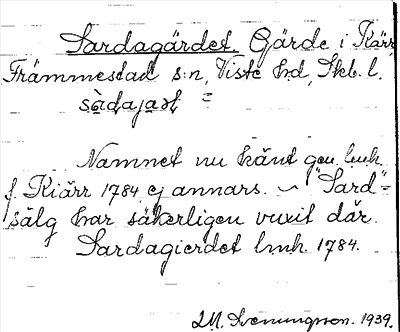 Sardagärdet. Gärde i Kärr,
Främmestad s:n, Viste hd, Skb. l.
sàdajäṣt =
Namnet nu känt gen. lmh.
f. Kiärr 1784, ej annars. ~ "Sard"=
sälg har säkerligen vuxit där.
Sardagierdet lmh. 1784.
J.M. Svenungsson. 1939.